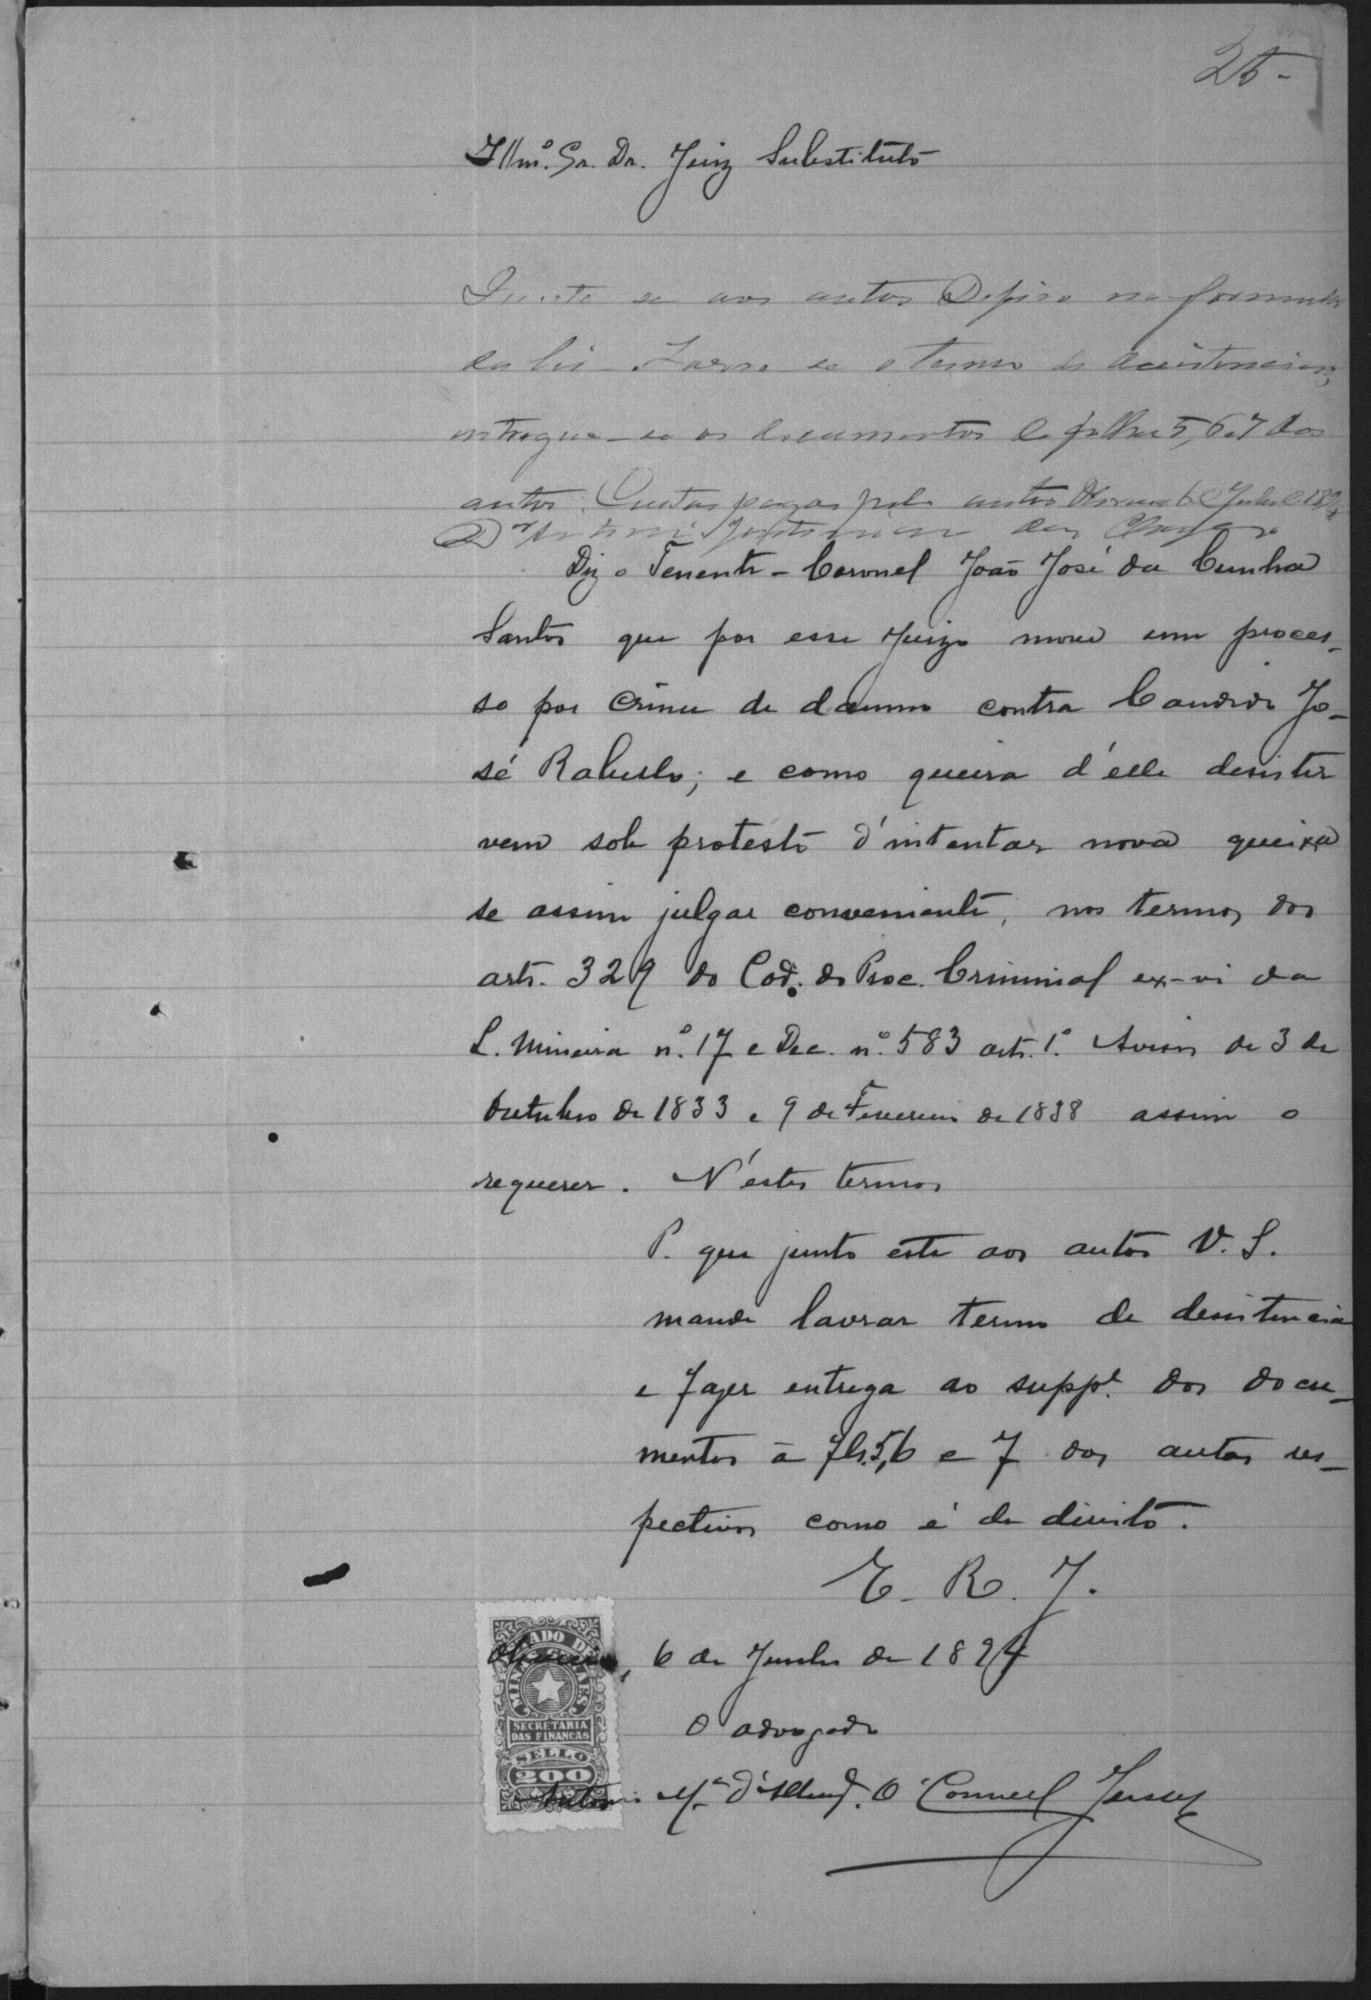 25-
Illmº. Sr. Dr. Juiz Substituto
Junte se aos autos Defiro na forma
da lei Lavre se o termo de desistencia,
entregue-se os documentos de folhas 5, 6 e 7 dos
autos. Custas pagas pelo autor 6 de 189
Diz o Tenente-Coronel João José da Cunha
Santos que por esse Juizo move um proces-
so por crime de damno contra Candido Jo-
sé Rabello; e como queira d'elle desistir
vem sob protesto d'intentar nova queixa
se assim julgar conveniente, nos termos dos
arts. 329 do Cod. do Proc. Criminal ex-vi da
L. Mineira nº. 17 e Dec. nº. 583 art. 1º. Avisos de 3 de
Outubro de 1833 e 9 de Fevereiro de 1838 assim o
requerer. N'estes termos
P. que junto este aos autos V. S.
mande lavrar termo de desistencia
e fazer entrega ao suppe. dos docu-
mentos á fls. 5, 6 e 7 dos autos res-
pectivos como é de direito.
E. R. J.
Oliveira, 6 de Junho de 1894
O advogado
Antonio Mª. d'Alm.da O'Connell Jersey
ESTADO DE
MINAS GERAES
SECRETARIA
DAS FINANCAS
SELLO
200